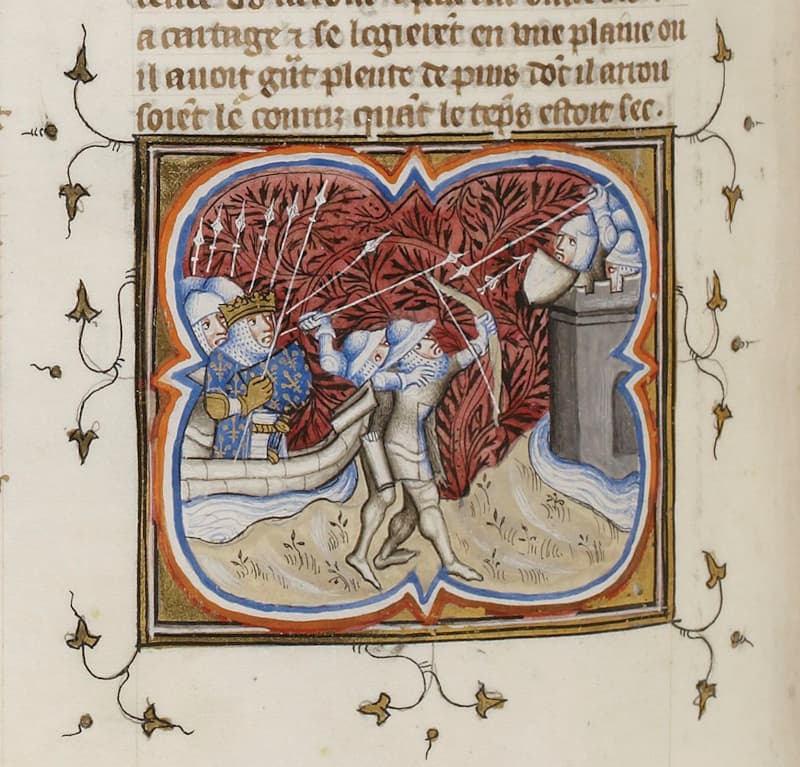 a cartage ⁊ se logieret en vne plaine ou
il auoit g̃ut plente de puis dot il arrou
soiet le courtiz quat le teps estoit sec.